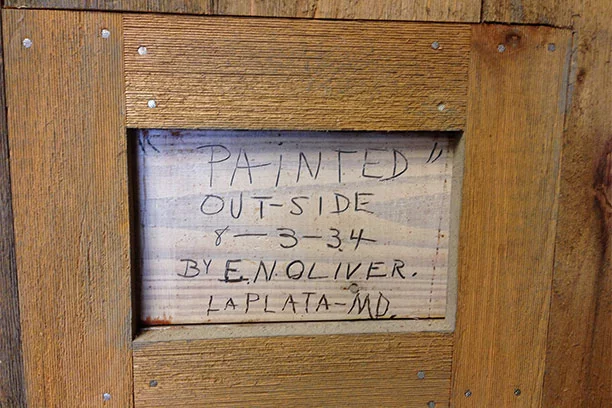 "PAINTED"
OUT-SIDE
8-3-34
BY E.N.OLIVER.
LAPLATA-MD.